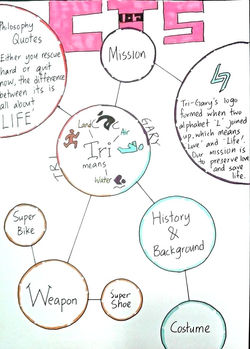 CTS
1.h
Mission
Philosophy
Quotes
Either you rescue
hard or quit
now, the difference
between its is
all about
LIFE
Tri-Gary's logo
formed when two
alphabet 'L' joined
up, which means
'Love' and 'Life'.
Our mission is
to preserve love
and save
life.
Land
Air
Tri
means
Water
TRI
GARY
Super
Bike
Weapon
Super
Shoe
History
&
Background
Costume